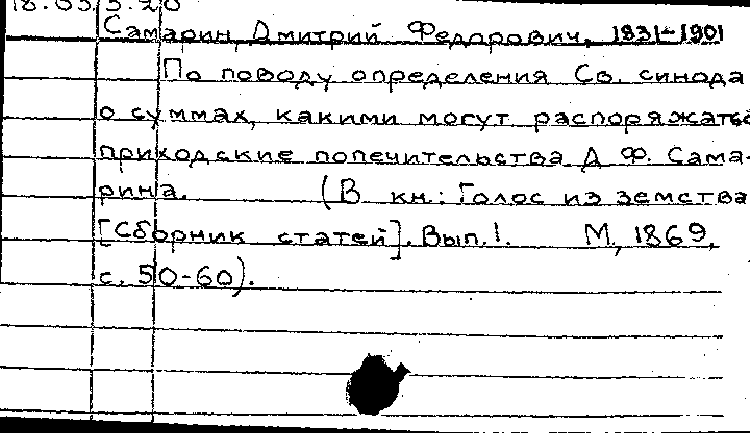 Самарин, Дмитрий Федорович, 1831-1901
По поводу определения Св. синода
о суммах, какими могут распоряжаться
приходские попечительства Д. Ф. Сама-
рина. (В кн.: Голос из земства
[Сборник статей]. Вып. 1. М., 1869,
с. 50-60).